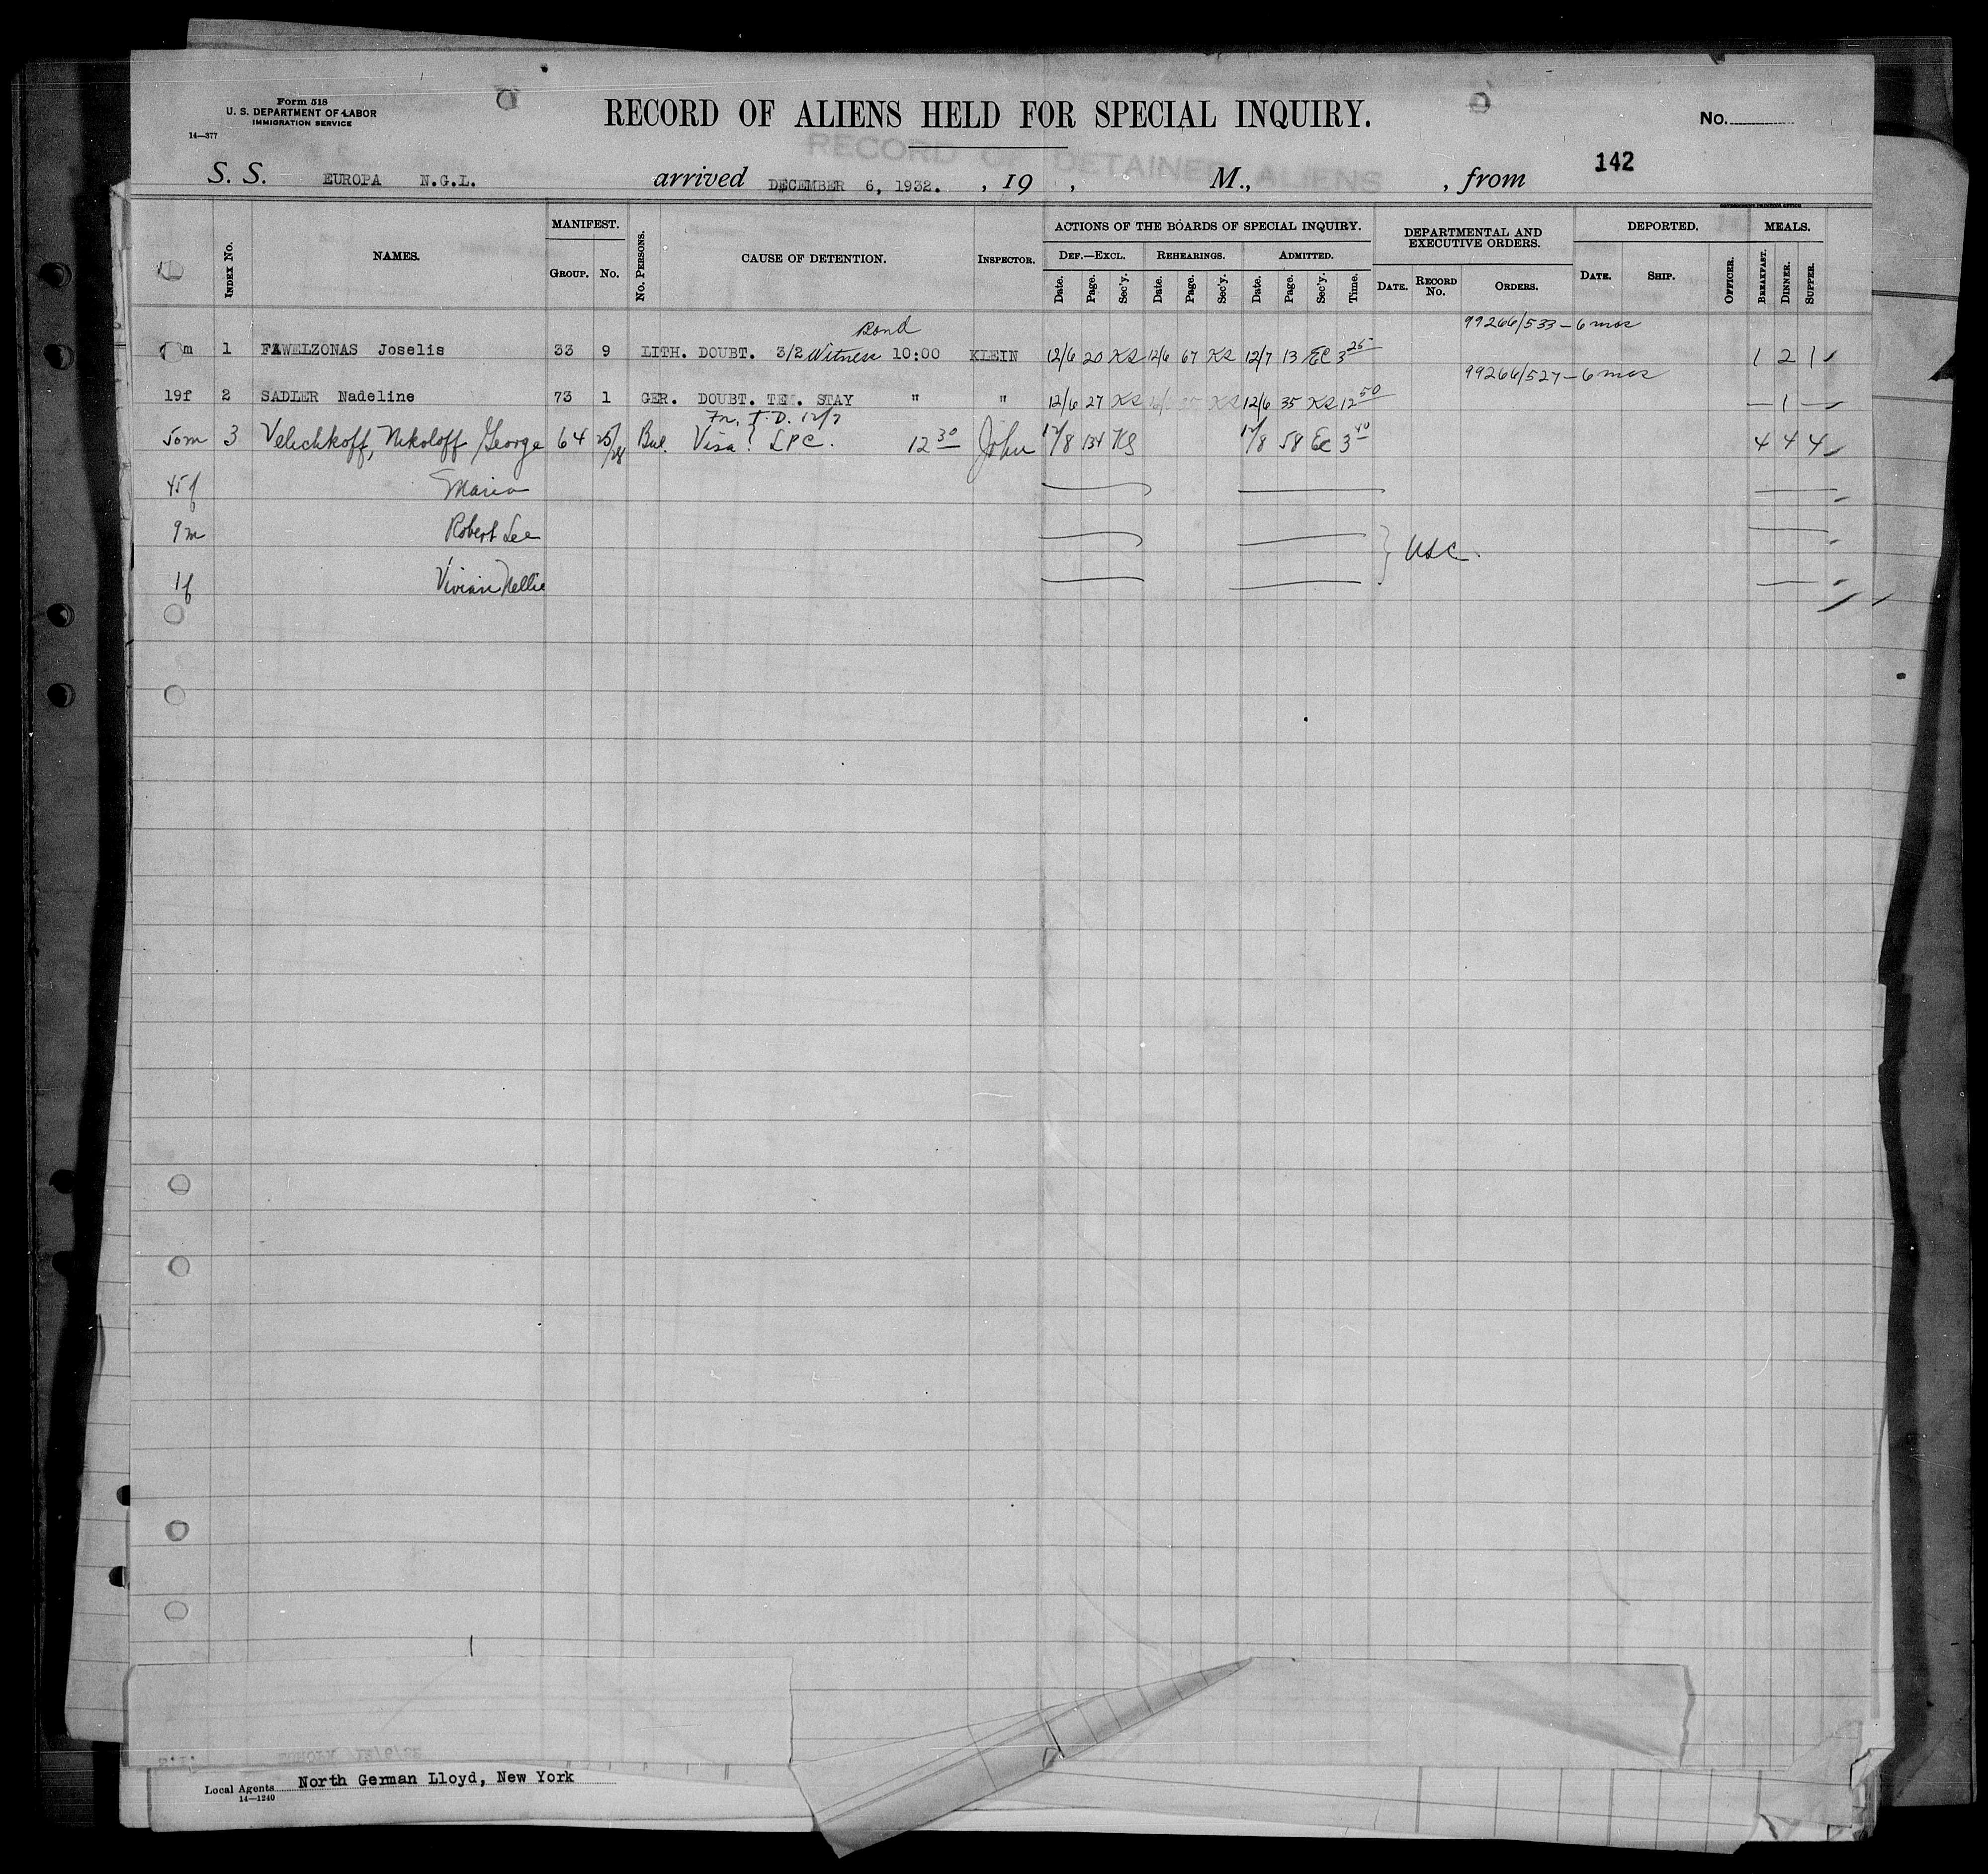 Form 518
U. S. DEPARTMENT OF LABOR
IMMIGRATION SERVICE
14—377
RECORD OF ALIENS HELD FOR SPECIAL INQUIRY.
No.
RECORD OF DETAINED ALIENS
142
S. S. EUROPA N.G.L. arrived DECEMBER 6, 1932. , 19 , M., , from
GOVERNMENT PRINTING OFFICE
INDEX No. NAMES. MANIFEST. GROUP. No. No. PERSONS. CAUSE OF DETENTION. INSPECTOR.
ACTIONS OF THE BOARDS OF SPECIAL INQUIRY. DEF.—EXCL. Date. Page. Sec'y. REHEARINGS. Date. Page. Sec'y. ADMITTED. Date. Page. Sec'y. Time.
DEPARTMENTAL AND EXECUTIVE ORDERS. DATE. RECORD No. ORDERS.
DEPORTED. DATE. SHIP. OFFICER. MEALS. BREAKFAST. DINNER. SUPPER.
Bond 99266/533 - 6 mos
m 1 PAWELZONAS Joselis 33 9 LITH. DOUBT. 3/2 Witness 10:00 KLEIN 12/6 20 KS 12/6 67 KS 12/7 13 EC 3 25 1 2 1
99266/527 - 6 mos
19f 2 SADLER Nadeline 73 1 GER. DOUBT. TEM. STAY " " 12/6 27 KS 12/6 35 KS 12 50 — 1 —
Fr. T.D. 12/7
50m 3 Velichkoff, Nikoloff George 64 25/28 Bul. Visa? LPC. 12 30 John 12/8 134 KS 12/8 58 EC 3 40 4 4 4
45f Maria
9m Robert Lee
} USC.
1f Vivian Nellie
S.I. EUROPA 12/6/32
Local Agents North German Lloyd, New York
14—1240